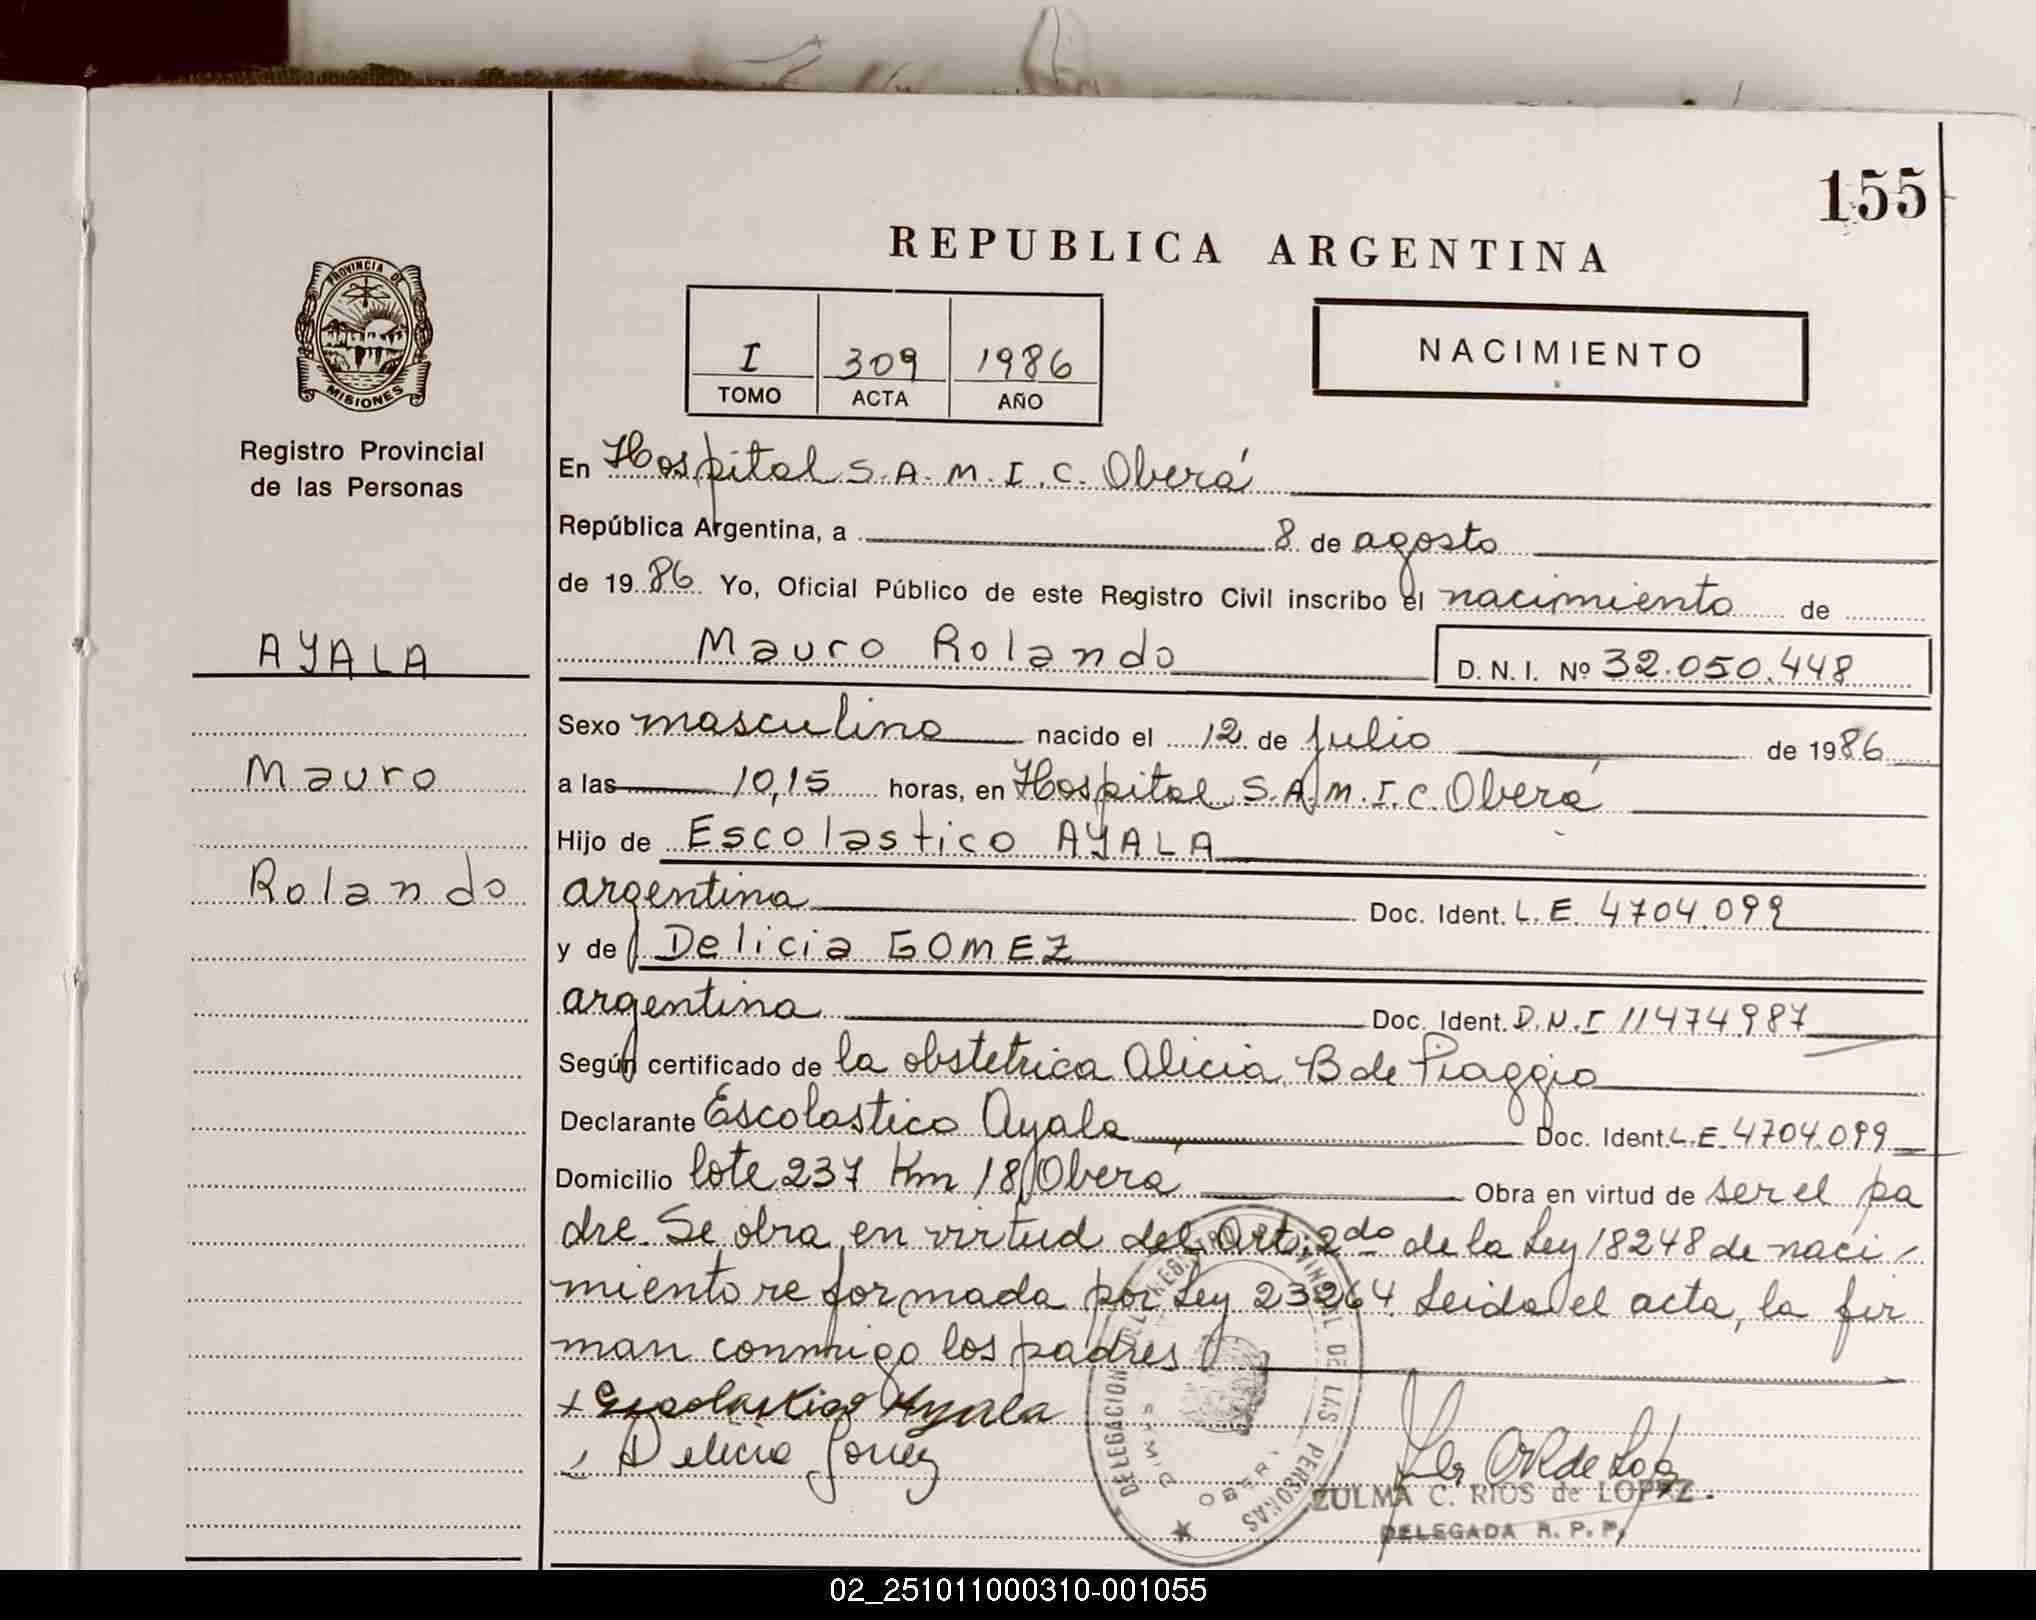 155
REPUBLICA ARGENTINA
PROVINCIA DE
MISIONES
I 309 1986
TOMO ACTA AÑO
NACIMIENTO
Registro Provincial
de las Personas
En Hospital S.A.M.I.C. Oberá
República Argentina, a 8 de agosto
de 1986 Yo, Oficial Público de este Registro Civil inscribo el nacimiento de
AYALA
Mauro Rolando D.N.I. Nº 32.050.448
Sexo masculino nacido el 12 de julio de 1986
Mauro
a las 10,15 horas, en Hospital S.A.M.I.C. Oberá
Hijo de Escolastico AYALA
Rolando
argentina Doc. Ident. L.E. 4704.099
y de Delicia GOMEZ
argentina Doc. Ident. D.N.I 11474987
Según certificado de la obstetrica Alicia B de Piaggio
Declarante Escolastico Ayala Doc. Ident. L.E. 4704.099
Domicilio lote 237 Km 18 Oberá Obra en virtud de ser el pa
dre. Se obra en virtud del Art. 2do de la Ley 18248 de naci-
miento reformada por Ley 23264. Leida el acta, la fir
man conmigo los padres
+ Escolastico Ayala
Delicia Gomez
DELEGACION DEL REG. PROVINCIAL DE LAS PERSONAS
ZULMA C. RIOS de LOPEZ
DELEGADA R. P. P.
02_251011000310-001055